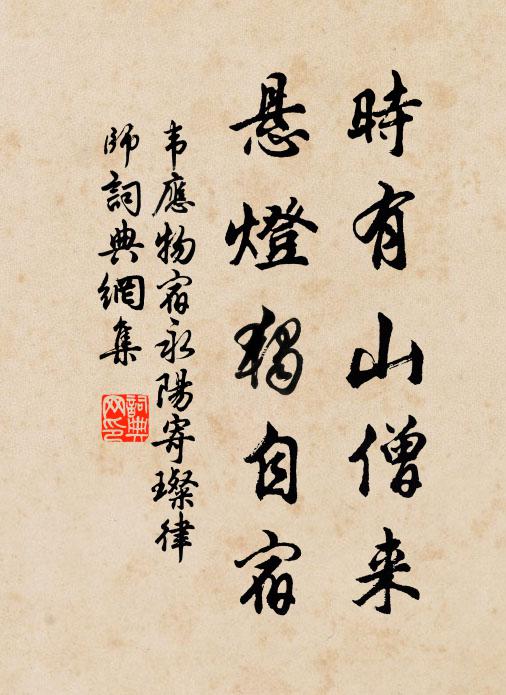 時有山僧来
悬燈獨自宿
韦應物宿永陽寄璨律
師詞典網集
詞典
网印